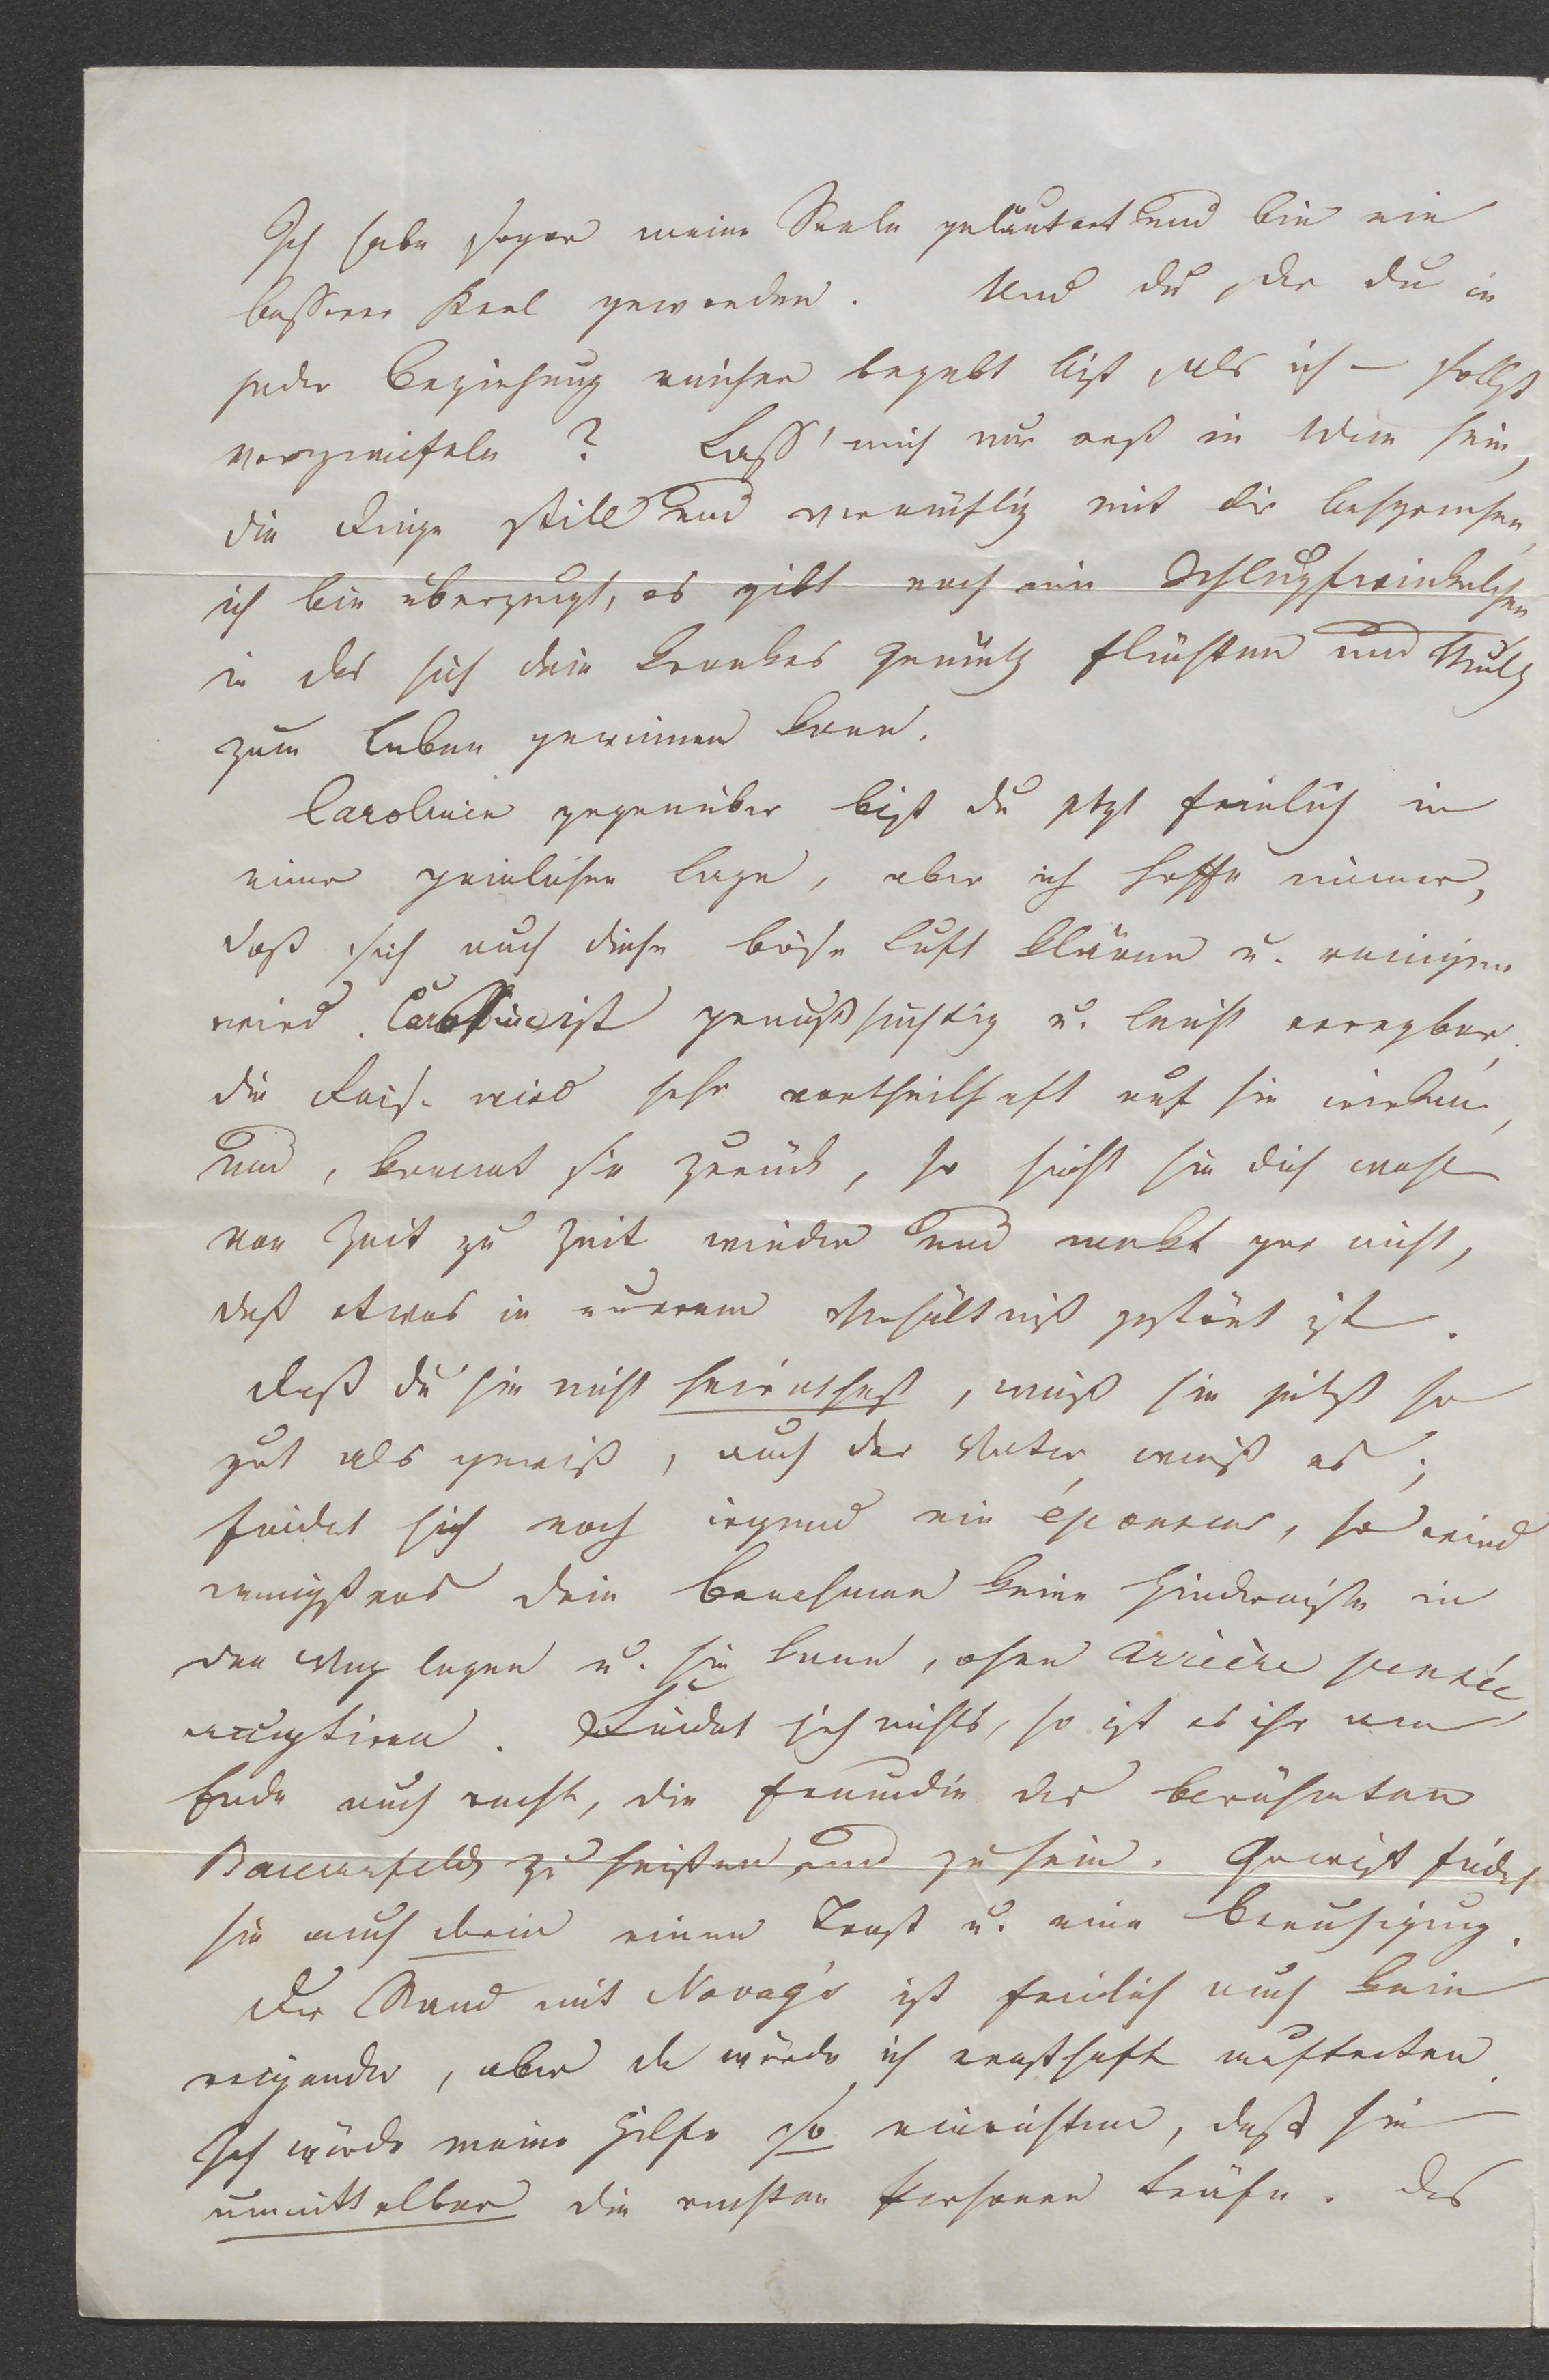 Ich habe sogar meine Seele geläutert und bin ein
besserer Kerl geworden. Und du, der du in
jeder Beziehung reicher begabt bist, als ich – sollst
verzweifeln? Lass' mich nur erst in Wien sein,
die Dinge still und vernünftig mit dir besprechen,
ich bin überzeugt, es gibt noch ein Schlupfwinkelchen
in das sich dein krankes Gemüth flüchten und Muth
zum Leben gewinnen kann.
Carolinen gegenüber bist du jetzt freilich in
einer peinlichen Lage, aber ich hoffe immer,
daß sich auch diese böse Luft klären u. reinigen
wird. Caroline ist genußsüchtig u. leicht erregbar,
die Reise wird sehr vortheilhaft auf sie wirken,
und, kommt sie zurück, so sieht sie dich wohl
von Zeit zu Zeit wieder und merkt gar nicht,
daß etwas in eurem Verhältniß gestört ist.
Daß du sie nicht heirathest, weiß sie jetzt so
gut als gewiß, auch der Vater weiß es;
findet sich noch irgend ein épouseur, so wird
wenigstens dein Benehmen keine Hindernisse in
den Weg legen u. sie kann, ohne arrière pensée
acceptiren. Findet sich nichts, so ist es ihr am
Ende auch recht, die Freundin des berühmten
Bauernfelds zu heißen und zu sein. Gewiß findet
sie auch darin einen Trost u. eine Beruhigung.
Der Stand mit Novag's ist freilich auch kein
reizender, aber da würde ich ernsthaft auftreten.
Ich würde meine Hilfe so einrichten, daß sie
unmittelbar die rechten Personen träfe. Das